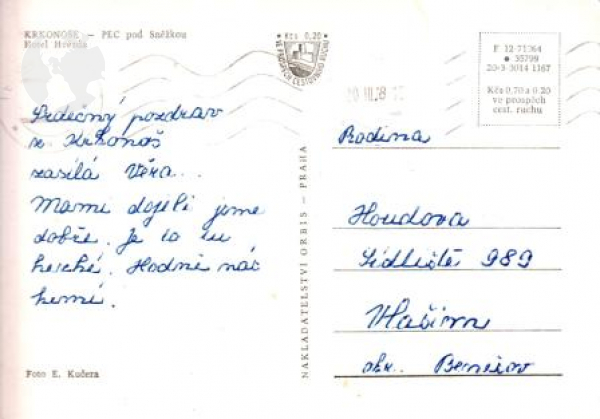 KRKONOŠE — PEC pod Sněžkou
Hotel Hořenka
Kčs 0,20
VE PROSPĚCH CESTOVNÍHO RUCHU
F 12-71364
35799
20-3-3014 1167
Kčs 0,70 a 0,20
ve prospěch
cest. ruchu
Srdečný pozdrav
z Krkonoš
zasílá Věra..
Mami dojeli jsme
dobře. Je to tu
hezké. Hodně
Rodina
Houdova
Sídliště 989
Vlašim
okr. Benešov
NAKLADATELSTVÍ ORBIS — PRAHA
Foto E. Kučera